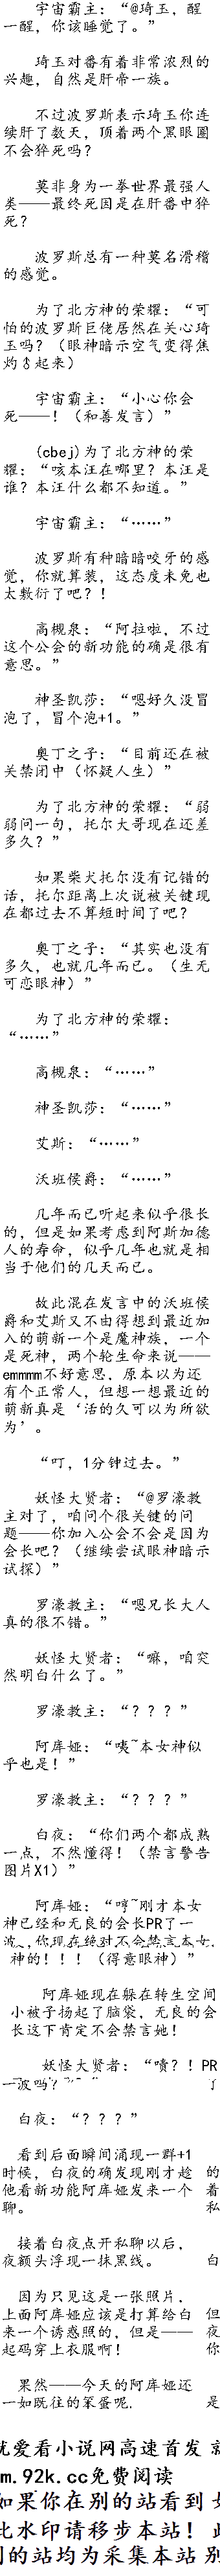 宇宙霸主：“@琦玉，醒
一醒，你该睡觉了。”
琦玉对番有着非常浓烈的
兴趣，自然是肝帝一族。
不过波罗斯表示琦玉你连
续肝了数天，顶着两个黑眼圈
不会猝死吗？
莫非身为一拳世界最强人
类——最终死因是在肝番中猝
死？
波罗斯总有一种莫名滑稽
的感觉。
为了北方神的荣耀：“可
怕的波罗斯巨佬居然在关心琦
玉吗？（眼神暗示空气变得焦
灼♂起来）
宇宙霸主：“小心你会
死——！（和善发言）”
(cbej)为了北方神的荣
耀：“咳本汪在哪里？本汪是
谁？本汪什么都不知道。”
宇宙霸主：“……”
波罗斯有种暗暗咬牙的感
觉，你就算装，这态度未免也
太敷衍了吧？！
高槻泉：“阿拉啦，不过
这个公会的新功能的确是很有
意思。”
神圣凯莎：“嗯好久没冒
泡了，冒个泡+1。”
奥丁之子：“目前还在被
关禁闭中（怀疑人生）”
为了北方神的荣耀：“弱
弱问一句，托尔大哥现在还差
多久？”
如果柴犬托尔没有记错的
话，托尔距离上次说被关键现
在都过去不算短时间了吧？
奥丁之子：“其实也没有
多久，也就几年而已。（生无
可恋眼神）”
为了北方神的荣耀：
“……”
高槻泉：“……”
神圣凯莎：“……”
艾斯：“……”
沃班侯爵：“……”
几年而已听起来似乎很长
的，但是如果考虑到阿斯加德
人的寿命，似乎几年也就是相
当于他们的几天而已。
故此混在发言中的沃班侯
爵和艾斯又不由得想到最近加
入的萌新一个是魔神族，一个
是死神，两个轮生命来说——
emmmm不好意思，原本以为还
有个正常人，但想一想最近的
萌新真是‘活的久可以为所欲
为’。
“叮，1分钟过去。”
妖怪大贤者：“@罗濠教
主对了，咱问个很关键的问
题——你加入公会不会是因为
会长吧？（继续尝试眼神暗示
试探）”
罗濠教主：“嗯兄长大人
真的很不错。”
妖怪大贤者：“嘛，咱突
然明白什么了。”
罗濠教主：“？？？”
阿库娅：“咦~本女神似
乎也是！”
罗濠教主：“？？？”
白夜：“你们两个都成熟
一点，不然懂得！（禁言警告
图片X1）”
阿库娅：“哼~刚才本女
神已经和无良的会长PR了一
波，你现在绝对不会禁言本女
神的！！！（得意眼神）”
阿库娅现在躲在转生空间
小被子扬起了脑袋，无良的会
长这下肯定不会禁言她！
妖怪大贤者：“啧？！PR
一波吗？”了
白夜：“？？？”
看到后面瞬间涌现一群+1
时候，白夜的确发现刚才趁 的
他看新功能阿库娅发来一个 着
聊。 私
接着白夜点开私聊以后，
夜额头浮现一抹黑线。 白
因为只见这是一张照片，
上面阿库娅应该是打算给白 但
来一个诱惑照的，但是—— 夜
起码穿上衣服啊！ 你
果然——今天的阿库娅还
一如既往的笨蛋呢. 是
优爱看小说网高速首发 京
m.92k.cc免费阅读
如果你在别的站看到
此水印请移步本站！
的站均为采集本站 别